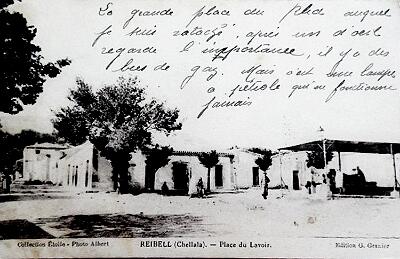 La grande place du bled auquel
je suis rataché, après un d'oeil
regarde l'importance, il y a des
becs de gaz. Mais c'est une lampe
à pétrole qui ne fonctionne
jamais
Collection Étoile - Photo Albert
REIBELL (Chellala). — Place du Lavoir.
Edition G. Grenier